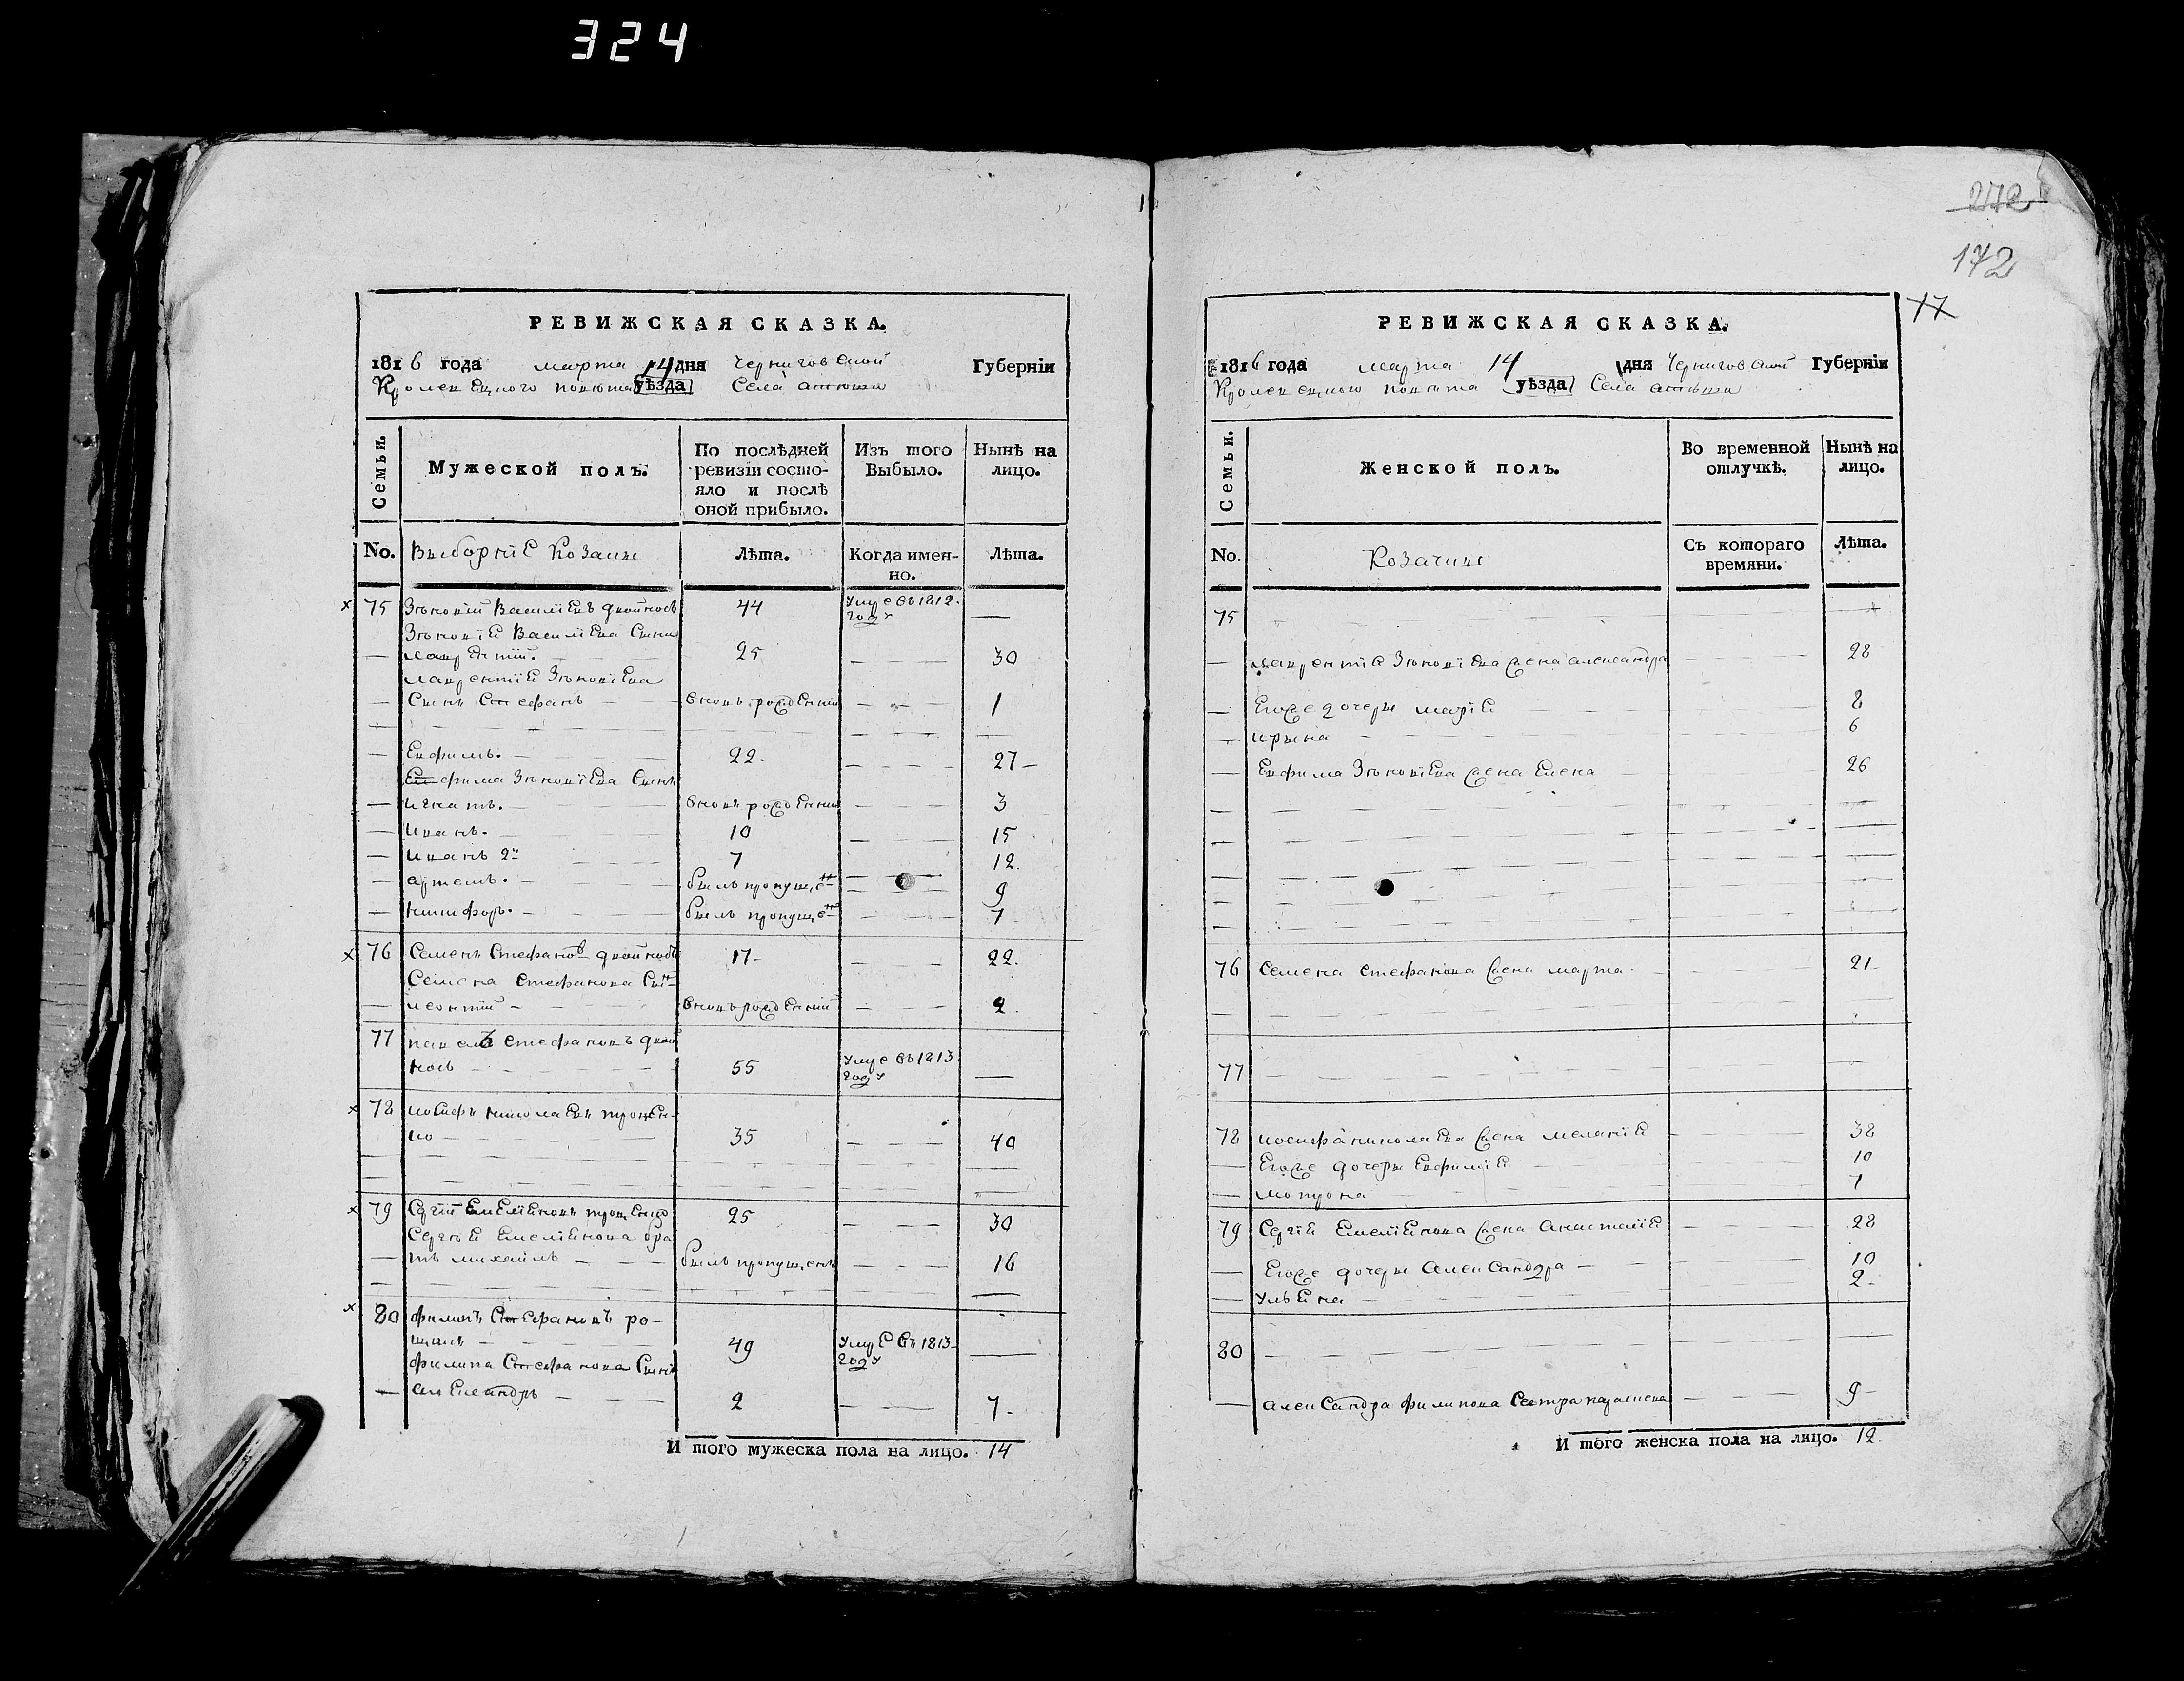 324
272
172
17
РЕВИЖСКАЯ СКАЗКА.
1816 года марта 14 дня Черниговской Губернїи
Кролевецкого повѣта уѣзда Села атюши
Семьи.
Мужеской полъ.
По послѣдней ревизїи состояло и послѣ оной прибыло.
Изъ того Выбыло.
Нынѣ на лицо.
No. Выборнїе Козаки
Лѣта.
Когда именно.
Лѣта.
75 Зѣновїй Василїевъ двойносъ 44 Умре въ 1812. году —
Зѣновїе Василїева Сынъ
— лаврентїй. 25 — 30
лаврентїе Зѣновїева
— Сынъ Стефанъ вновь рожденнїй — 1
— Евфимъ. 22. — 27
Евфима Зѣновїева Сынъ
— игнатъ. вновь рожденнїй — 3
— иванъ. 10 — 15
— иванъ 2й 7 — 12.
— артемъ. былъ пропущен — 9
— никифоръ. былъ пропущен — 7
76 Семенъ Стефановъ двойносъ 17 — 22.
Семена Стефанова Сын
— леонтїй вновь рожденнїй — 2.
77 павелъ Стефановъ двой
носъ 55 Умре въ 1813 году —
78 иосифъ николаевъ троцен-
ко 35 — 40
79 Сергїй Емелїеновъ троценко 25 — 30
Сергѣе Емелїенова бра
— тъ михайлъ былъ пропущенъ — 16
80 филипъ Стефановъ ро-
щинъ 49 Умре въ 1813 году —
филипа Стефанова Сынъ
— алеѯандръ 2 — 7
И того мужеска пола на лицо. 14
РЕВИЖСКАЯ СКАЗКА.
1816 года марта 14 дня Черниговской Губернїи
Кролевецкого повѣта уѣзда Села атюши
Семьи.
Женской полъ.
Во временной отлучкѣ.
Нынѣ на лицо.
No. Козачки
Съ котораго времяни.
Лѣта.
75
— лаврентїе Зѣновїева жена александра — 28
— Егоже дочеры марїе 8
— ирына 6
— Евфима Зѣновїева жена Елена 26
76 Семена Стефанова жена марта 21
77
78 иосифа николаева жена меланїе 38
— Егоже дочеры Евфимїе 10
— мотрона 1
79 Сергїе Емелїенова жена Анастасїе 28
— Егоже дочеры Александра 10
— Улїена 2
80
— Александра филипова Сестра параскева 9
И того женска пола на лицо. 12.